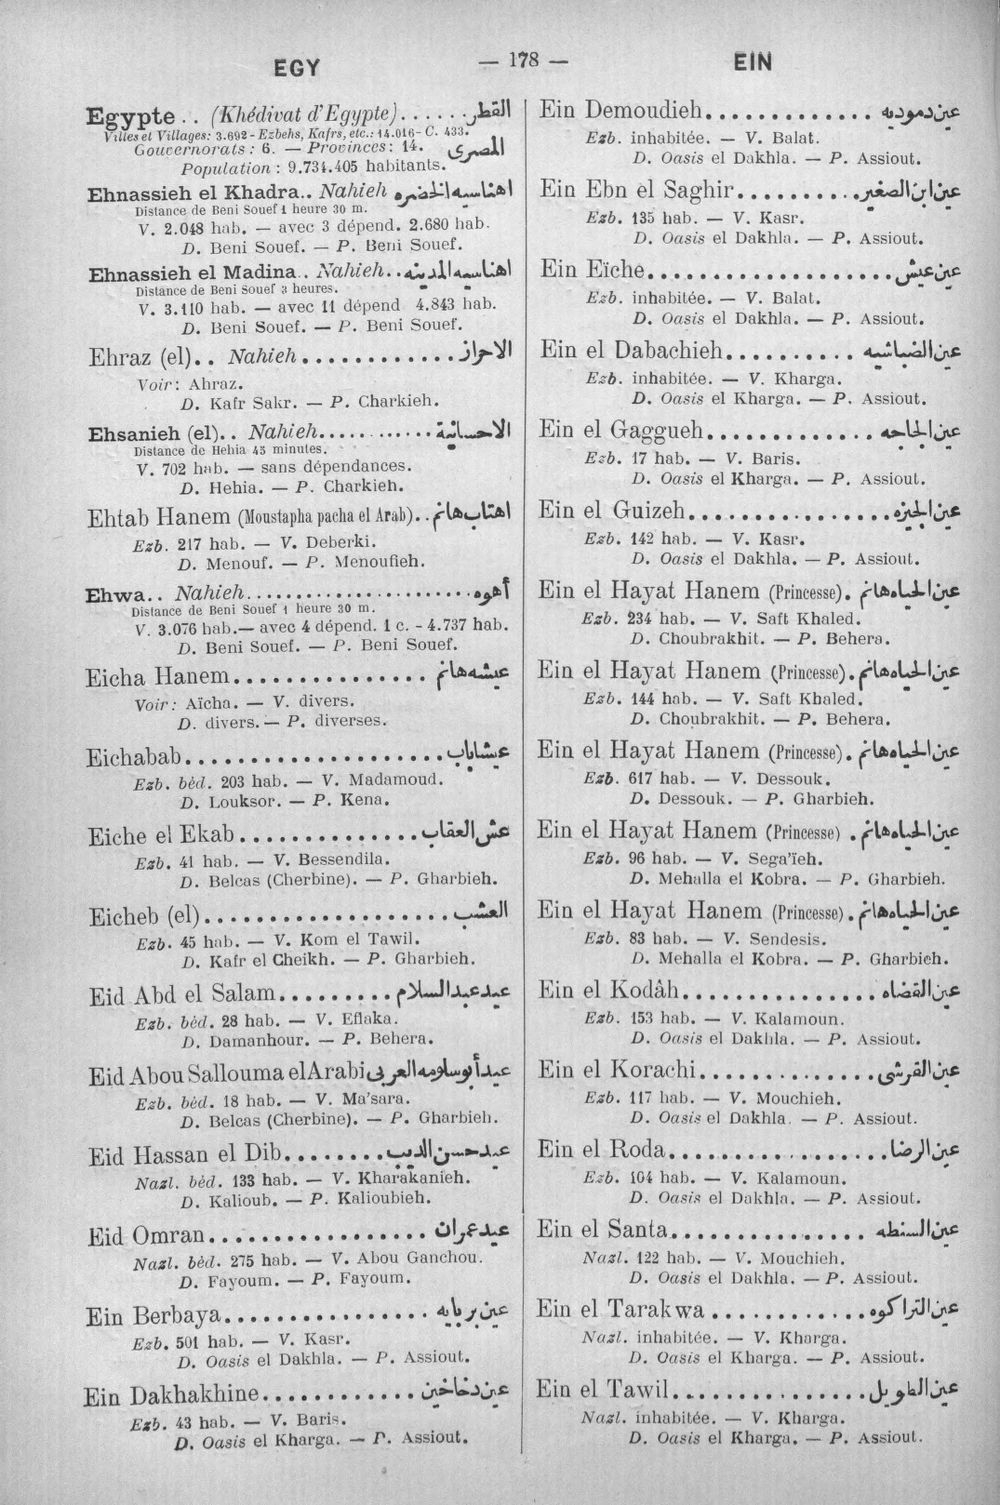 EGY
— 178 —
EIN
Egypte . . (Khédivat d'Egypte) . . . . . . القطر
Villes et Villages: 3.692 - Ezbehs, Kafrs, etc.: 14.016 - C. 433.
Gouvernorats : 6. — Provinces : 14. المصرى
Population : 9.734.405 habitants.
Ehnassieh el Khadra.. Nahieh اهناسيه الخضره
Distance de Beni Souef 1 heure 30 m.
V. 2.048 hab. — avec 3 dépend. 2.680 hab.
D. Beni Souef. — P. Beni Souef.
Ehnassieh el Madina.. Nahieh.. اهناسيه المدينه
Distance de Beni Souef 3 heures.
V. 3.110 hab. — avec 11 dépend 4.843 hab.
D. Beni Souef. — P. Beni Souef.
Ehraz (el).. Nahieh . . . . . . . . . . . . . الاحراز
Voir : Ahraz.
D. Kafr Sakr. — P. Charkieh.
Ehsanieh (el).. Nahieh............ الاحسانية
Distance de Hehia 45 minutes.
V. 702 hab. — sans dépendances.
D. Hehia. — P. Charkieh.
Ehtab Hanem (Moustapha pacha el Arab).. اهتاب هانم
Ezb. 217 hab. — V. Deberki.
D. Menouf. — P. Menoufieh.
Ehwa.. Nahieh........................ أهوه
Distance de Beni Souef 1 heure 30 m.
V. 3.076 hab.— avec 4 dépend. 1 c. - 4.737 hab.
D. Beni Souef. — P. Beni Souef.
Eicha Hanem............... عيشه هانم
Voir : Aïcha. — V. divers.
D. divers. — P. diverses.
Eichabab.................... عيشاباب
Ezb. béd. 203 hab. — V. Madamoud.
D. Louksor. — P. Kena.
Eiche el Ekab.............. عش العقاب
Ezb. 41 hab. — V. Bessendila.
D. Belcas (Cherbine). — P. Gharbieh.
Eicheb (el)................... العشب
Ezb. 45 hab. — V. Kom el Tawil.
D. Kafr el Cheikh. — P. Gharbieh.
Eid Abd el Salam......... عيد عبد السلام
Ezb. béd. 28 hab. — V. Eflaka.
D. Damanhour. — P. Behera.
Eid Abou Sallouma el Arabi عيد أبو سلومه العربى
Ezb. béd. 18 hab. — V. Ma'sara.
D. Belcas (Cherbine). — P. Gharbieh.
Eid Hassan el Dib........ عيد حسن الديب
Nazl. béd. 133 hab. — V. Kharakanieh.
D. Kalioub. — P. Kalioubieh.
Eid Omran................. عيد عمران
Nazl. béd. 275 hab. — V. Abou Ganchou.
D. Fayoum. — P. Fayoum.
Ein Berbaya................ عين بربايه
Ezb. 501 hab. — V. Kasr.
D. Oasis el Dakhla. — P. Assiout.
Ein Dakhakhine............ عين دخاخين
Ezb. 43 hab. — V. Baris.
D. Oasis el Kharga. — P. Assiout.
Ein Demoudieh............. عين دموديه
Ezb. inhabitée. — V. Balat.
D. Oasis el Dakhla. — P. Assiout.
Ein Ebn el Saghir.......... عين ابن الصغير
Ezb. 135 hab. — V. Kasr.
D. Oasis el Dakhla. — P. Assiout.
Ein Eïche................... عين عيش
Ezb. inhabitée. — V. Balat.
D. Oasis el Dakhla. — P. Assiout.
Ein el Dabachieh.......... عين الضباشيه
Ezb. inhabitée. — V. Kharga.
D. Oasis el Kharga. — P. Assiout.
Ein el Gaggueh............. عين الجاجه
Ezb. 17 hab. — V. Baris.
D. Oasis el Kharga. — P. Assiout.
Ein el Guizeh................ عين الجيزه
Ezb. 142 hab. — V. Kasr.
D. Oasis el Dakhla. — P. Assiout.
Ein el Hayat Hanem (Princesse). عين الحياه هانم
Ezb. 234 hab. — V. Saft Khaled.
D. Choubrakhit. — P. Behera.
Ein el Hayat Hanem (Princesse). عين الحياه هانم
Ezb. 144 hab. — V. Saft Khaled.
D. Choubrakhit. — P. Behera.
Ein el Hayat Hanem (Princesse). عين الحياه هانم
Ezb. 617 hab. — V. Dessouk.
D. Dessouk. — P. Gharbieh.
Ein el Hayat Hanem (Princesse) . عين الحياه هانم
Ezb. 96 hab. — V. Sega'ïeh.
D. Mehalla el Kobra. — P. Gharbieh.
Ein el Hayat Hanem (Princesse). عين الحياه هانم
Ezb. 83 hab. — V. Sendesis.
D. Mehalla el Kobra. — P. Gharbieh.
Ein el Kodâh............... عين القضاه
Ezb. 153 hab. — V. Kalamoun.
D. Oasis el Dakhla. — P. Assiout.
Ein el Korachi............. عين القرشى
Ezb. 117 hab. — V. Mouchieh.
D. Oasis el Dakhla. — P. Assiout.
Ein el Roda................. عين الرضا
Ezb. 104 hab. — V. Kalamoun.
D. Oasis el Dakhla. — P. Assiout.
Ein el Santa................ عين السنطه
Nazl. 122 hab. — V. Mouchieh.
D. Oasis el Dakhla. — P. Assiout.
Ein el Tarakwa ............ عين التراكوه
Nazl. inhabitée. — V. Kharga.
D. Oasis el Kharga. — P. Assiout.
Ein el Tawil............... عين الطويل
Nazl. inhabitée. — V. Kharga.
D. Oasis el Kharga. — P. Assiout.